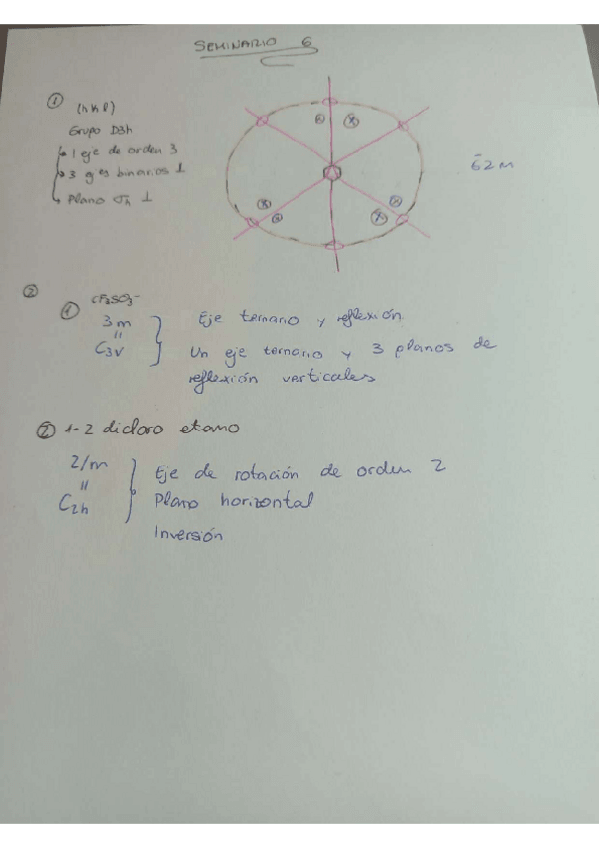 SEMINARIO 6
① (h k l)
Grupo D3h
1 eje de orden 3
3 ejes binarios ⊥
Plano σh ⊥
6̄2m
②
① CF3SO3-
3m
=
C3v
Eje ternario y reflexión.
Un eje ternario y 3 planos de
reflexión verticales
② 1-2 dicloro etano
2/m
=
C2h
Eje de rotación de orden 2
Plano horizontal
Inversión